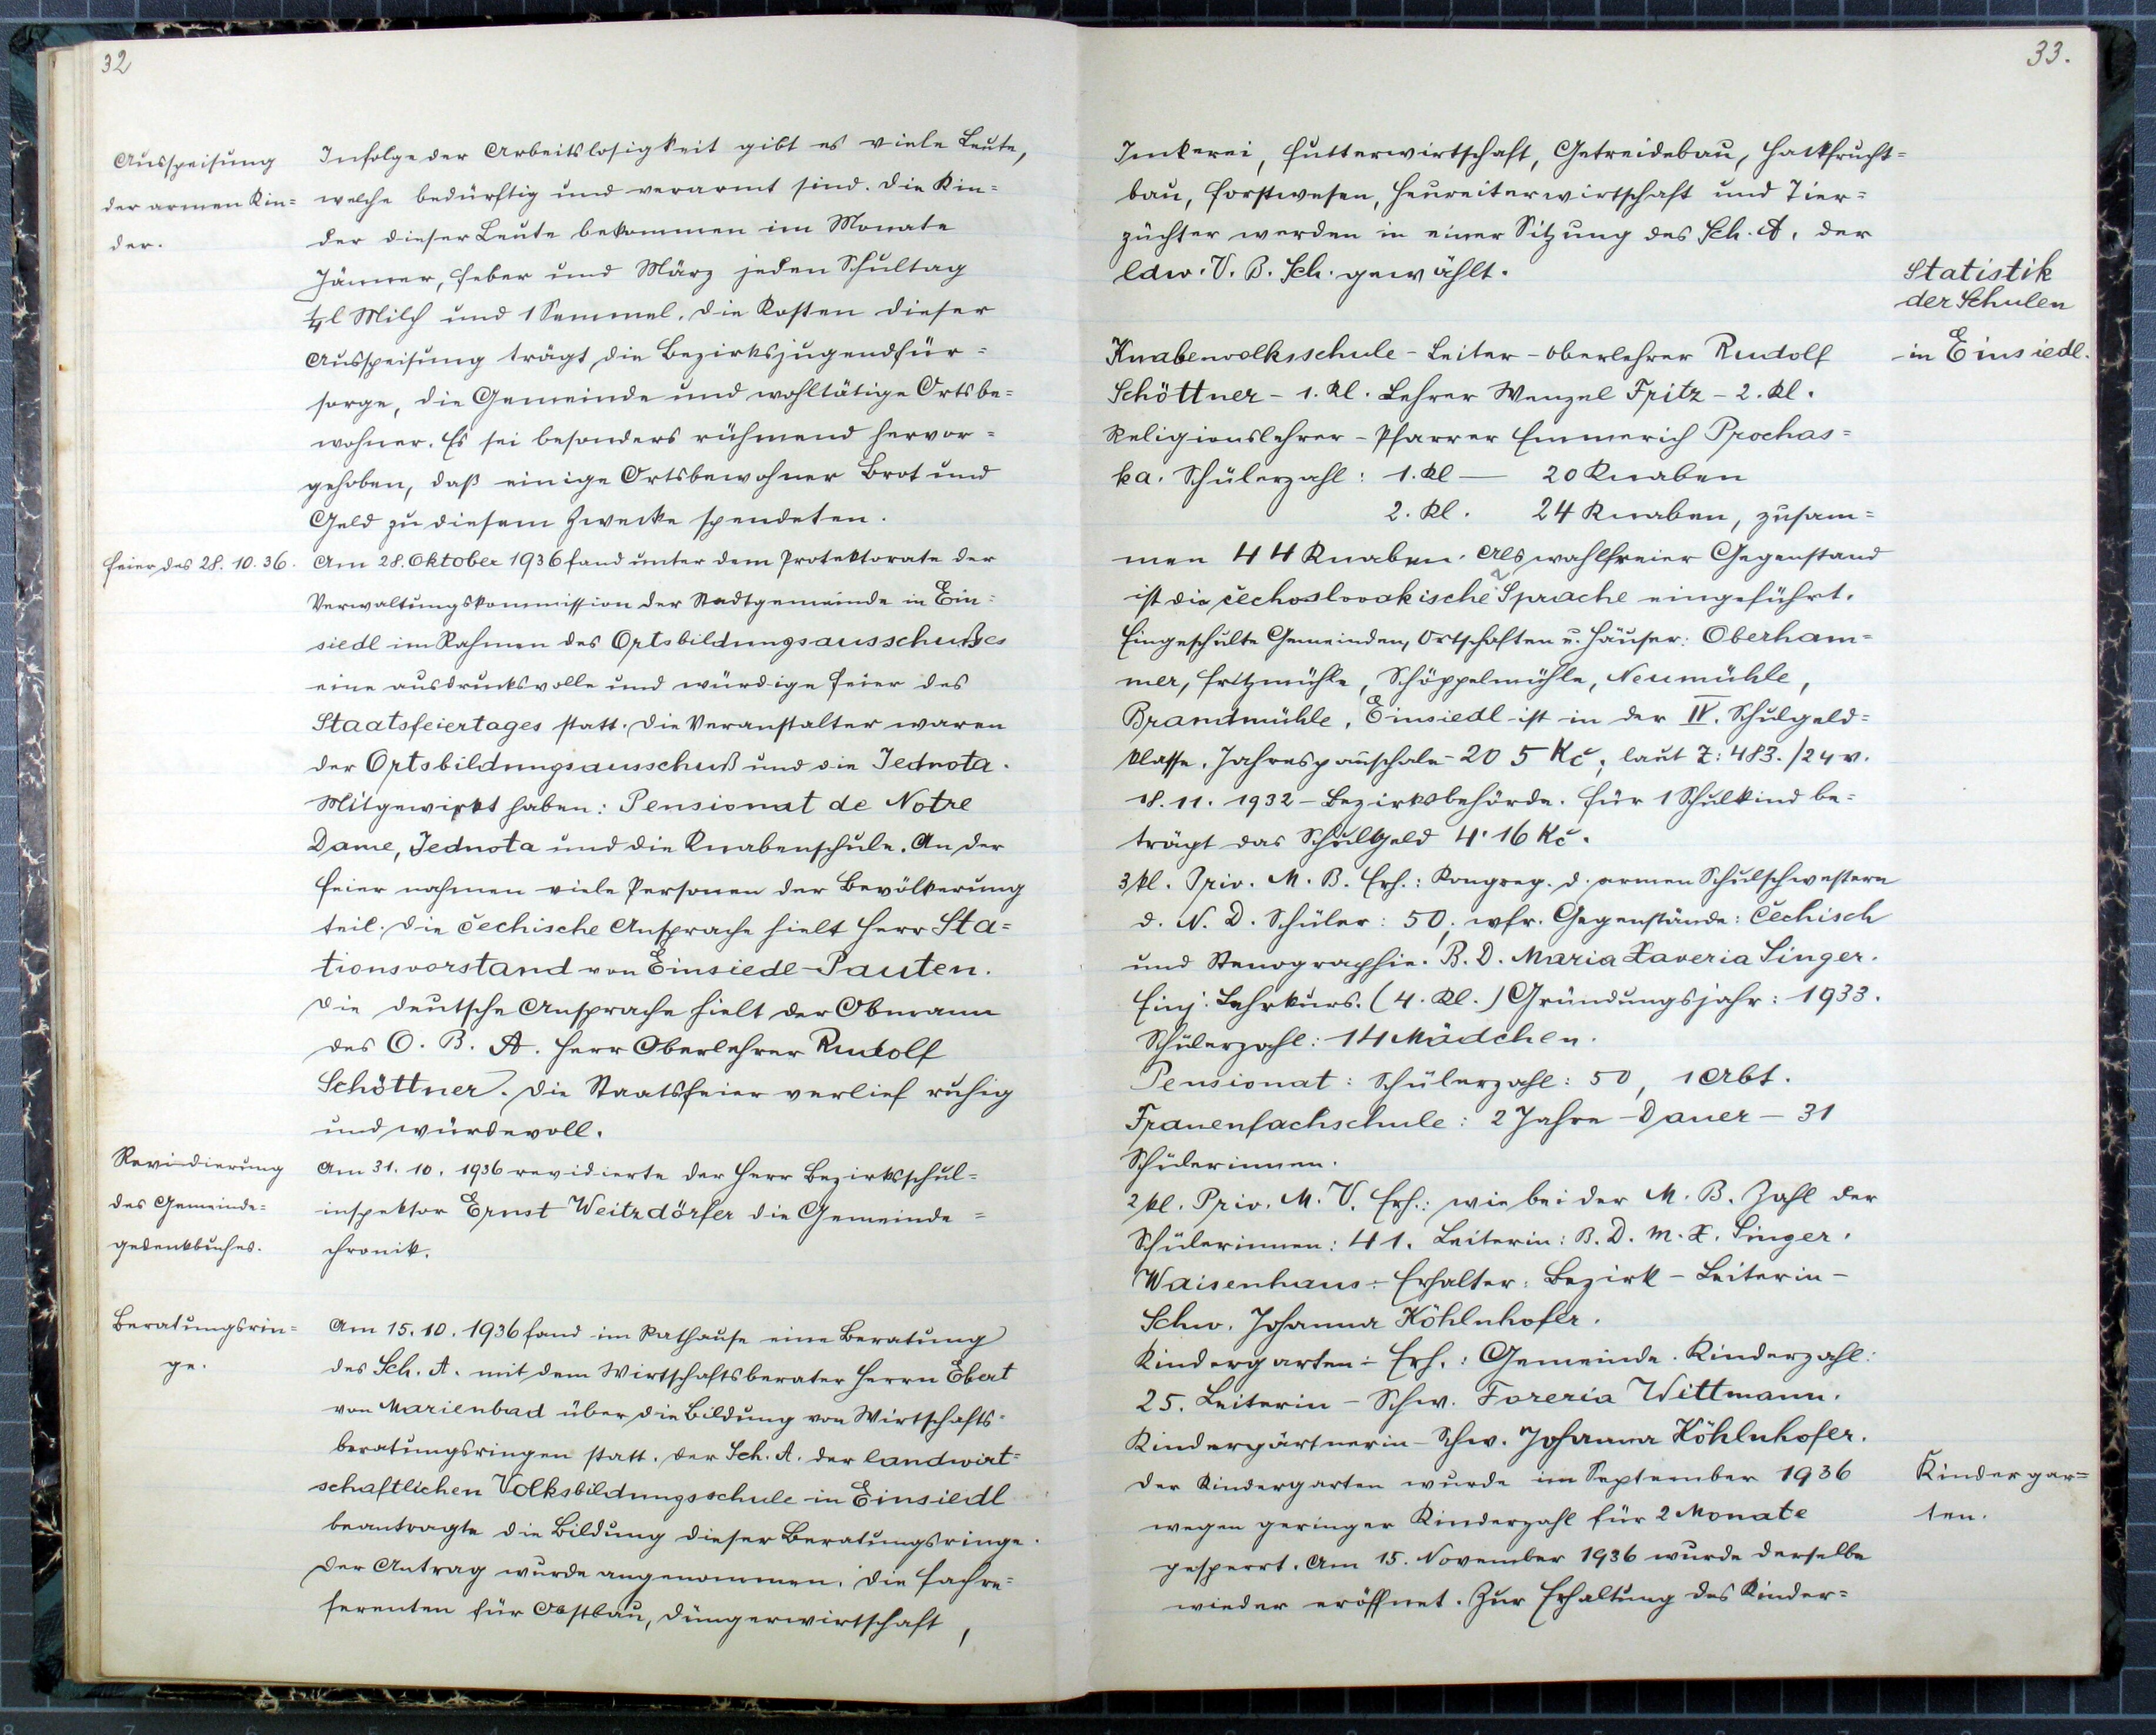 32
Ausspeisung
der armen Kin=
der.
Infolge der Arbeitslosigkeit gibt es viele Leute,
welche bedürftig und verarmt sind. Die Kin=
der dieser Leute bekommen im Monate
Jänner, Feber und März jeden Schultag
¼ l Milch und 1 Semmel. Die Kosten dieser
Ausspeisung trägt die Bezirksjugendfür=
sorge, die Gemeinde und wohltätige Ortsbe=
wohner. Es sei besonders rühmend hervor=
gehoben, daß einige Ortsbewohner Brot und
Geld zu diesem Zwecke spendeten.
Feier des 28. 10. 36.
Am 28. Oktober 1936 fand unter dem Protektorate der
Verwaltungskommission der Stadtgemeinde in Ein=
siedl im Rahmen des Ortsbildungsausschußes
eine ausdrucksvolle und würdige Feier des
Staatsfeiertages statt. Die Veranstalter waren
der Ortsbildungsausschuß und die Jednota.
Mitgewirkt haben: Pensionat de Notre
Dame, Jednota und die Knabenschule. An der
Feier nahmen viele Personen der Bevölkerung
teil. Die čechische Ansprache hielt Herr Sta=
tionsvorstand von Einsiedl-Pauten.
Die deutsche Ansprache hielt der Obmann
des O. B. A. Herr Oberlehrer Rudolf
Schöttner. Die Staatsfeier verlief ruhig
und würdevoll.
Revidierung
des Gemeinde=
gedenkbuches.
Am 31. 10. 1936 revidierte der Herr Bezirksschul=
inspektor Ernst Weitzdörfer die Gemeinde=
chronik.
Beratungsrin=
ge.
Am 15. 10. 1936 fand im Rathause eine Beratung
des Sch. A. mit dem Wirtschaftsberater Herrn Ebert
von Marienbad über die Bildung von Wirtschafts=
beratungsringen statt. Der Sch. A. der landwirt=
schaftlichen Volksbildungsschule in Einsiedl
beantragte die Bildung dieser Beratungsringe.
Der Antrag wurde angenommen. Die Fachre=
ferenten für Obstbau, Düngerwirtschaft,
33.
Imkerei, Futterwirtschaft, Getreidebau, Hackfrucht=
bau, Forstwesen, Heureiterwirtschaft und Tier=
züchter werden in einer Sitzung des Sch. A. der
ldw. V. B. Sch. gewählt.
Statistik
der Schulen
in Einsiedl.
Knabenvolksschule - Leiter - Oberlehrer Rudolf
Schöttner - 1. Kl. Lehrer Wenzel Fritz - 2. Kl.
Religionslehrer - Pfarrer Emmerich Prochas=
ka. Schülerzahl: 1. Kl — 20 Knaben
2. Kl. 24 Knaben, zusam=
men 44 Knaben. Als wahlfreier Gegenstand
ist die čechoslovakische Sprache eingeführt.
Eingeschulte Gemeinden, Ortschaften u. Häuser: Oberham=
mer, Fritzmühle, Schöppelmühle, Neumühle,
Brandmühle. Einsiedl ist in der IV. Schulgeld=
klasse. Jahrespauschale - 205 Kč, laut Z: 483./24 v.
18. 11. 1932 - Bezirksbehörde. Für 1 Schulkind be=
trägt das Schulgeld 4·16 Kč.
3 kl. Priv. M. B. Erh.: Kongreg. d. armen Schulschwestern
d. N. D. Schüler: 50; wfr. Gegenstände: Čechisch
und Stenographie. B. D. Maria Xaveria Singer.
Einj. Lehrkurs. (4. Kl.) Gründungsjahr: 1933.
Schülerzahl: 14 Mädchen.
Pensionat: Schülerzahl: 50, 1 Abt.
Frauenfachschule: 2 Jahre - Dauer - 31
Schülerinnen.
2 kl. Priv. M. V. Erh.: wie bei der M. B. Zahl der
Schülerinnen: 41. Leiterin: B. D. M. X. Singer.
Waisenhaus: Erhalter: Bezirk - Leiterin -
Schw. Johanna Köhlnhofer.
Kindergarten: Erh.: Gemeinde. Kinderzahl:
25. Leiterin - Schw. Foreria Wittmann.
Kindergärtnerin - Schw. Johanna Köhlnhofer.
Kindergar=
ten.
Der Kindergarten wurde im September 1936
wegen geringer Kinderzahl für 2 Monate
gesperrt. Am 15. November 1936 wurde derselbe
wieder eröffnet. Zur Erhaltung des Kinder=